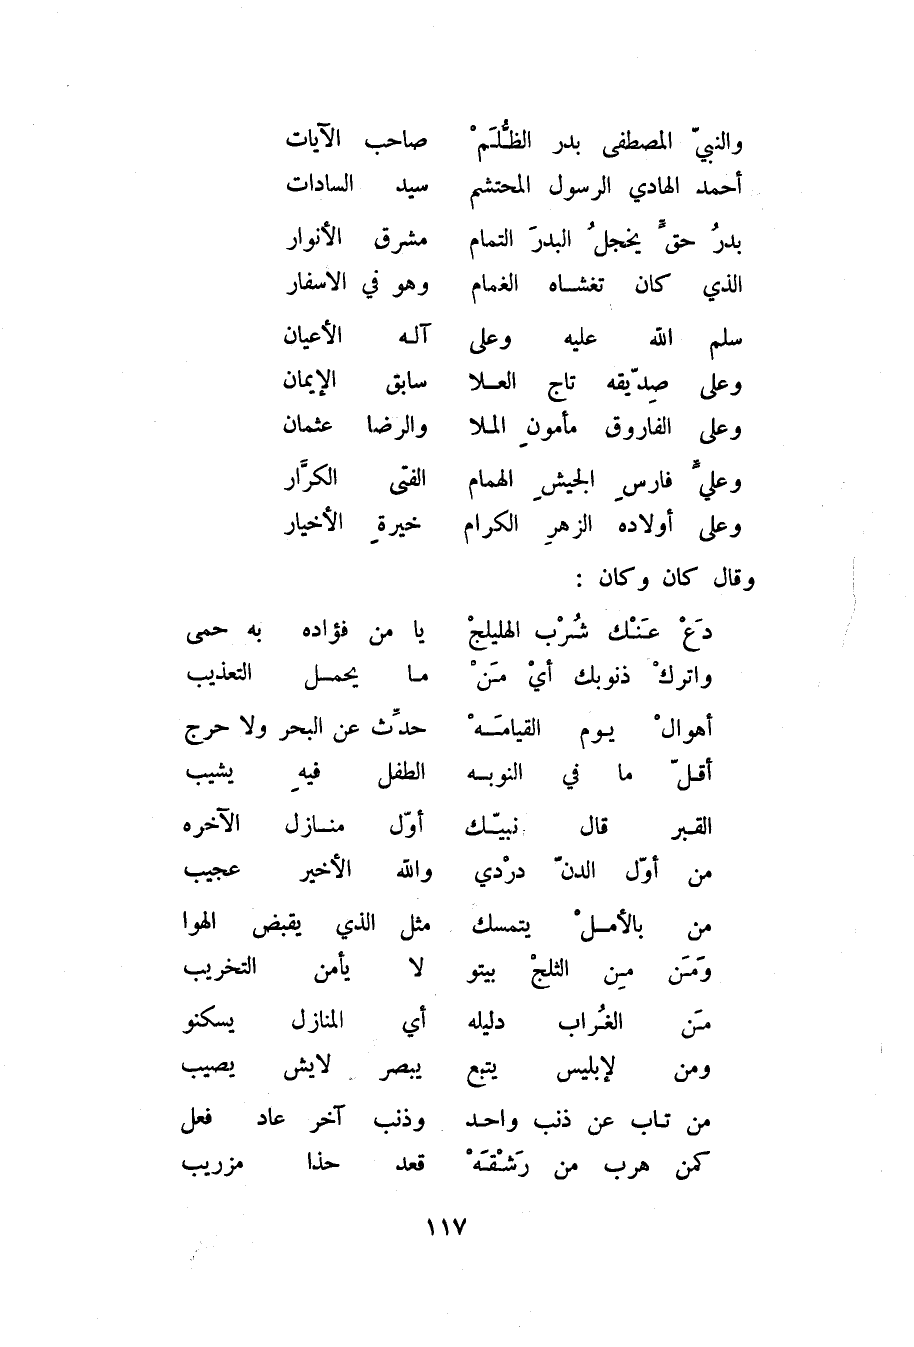 والنبيّ المصطفى بدر الظُّلَمْ صاحب الآيات
أحمد الهادي الرسول المحتشم سيد السادات
بدرُ حقٍّ يخجلُ البدرَ التمام مشرق الأنوار
الذي كان تغشاه الغمام وهو في الاسفار
سلم الله عليه وعلى آله الأعيان
وعلى صِدّيقه تاج العلا سابق الإيمان
وعلى الفاروق مأمونِ الملا والرضا عثمان
وعليٍّ فارسِ الجيشِ الهمام الفتى الكرَّار
وعلى أولاده الزهرِ الكرام خيرةِ الأخيار
وقال كان وكان :
دَعْ عَنْك شُرْب الهليلجْ يا من فؤاده به حمى
واتركْ ذنوبك أيْ مَنْ ما يحمل التعذيب
أهوالْ يوم القيامَهْ حدِّث عن البحر ولا حرج
أقلّ ما في النوبه الطفل فيهِ يشيب
القبر قال نبيّك أوّل منازل الآخره
من أوّل الدنّ درْدي والله الأخير عجيب
من بالأملْ يتمسك مثل الذي يقبض الهوا
وَمَن مِن الثلجْ بيتو لا يأمن التخريب
مَن الغُراب دليله أي المنازل يسكنو
ومن لإبليس يتبع يبصر لايش يصيب
من تاب عن ذنب واحد وذنب آخر عاد فعل
كمن هرب من رَشْقَهْ قعد حذا مزريب
١١٧